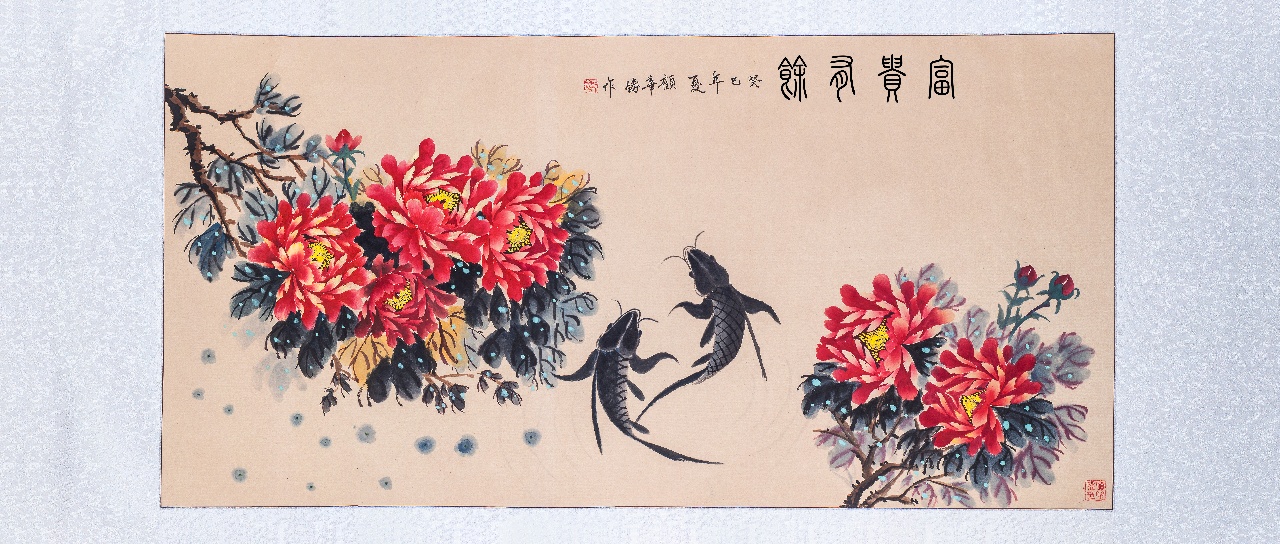 富貴有餘
癸巳年夏顏亭鑄作